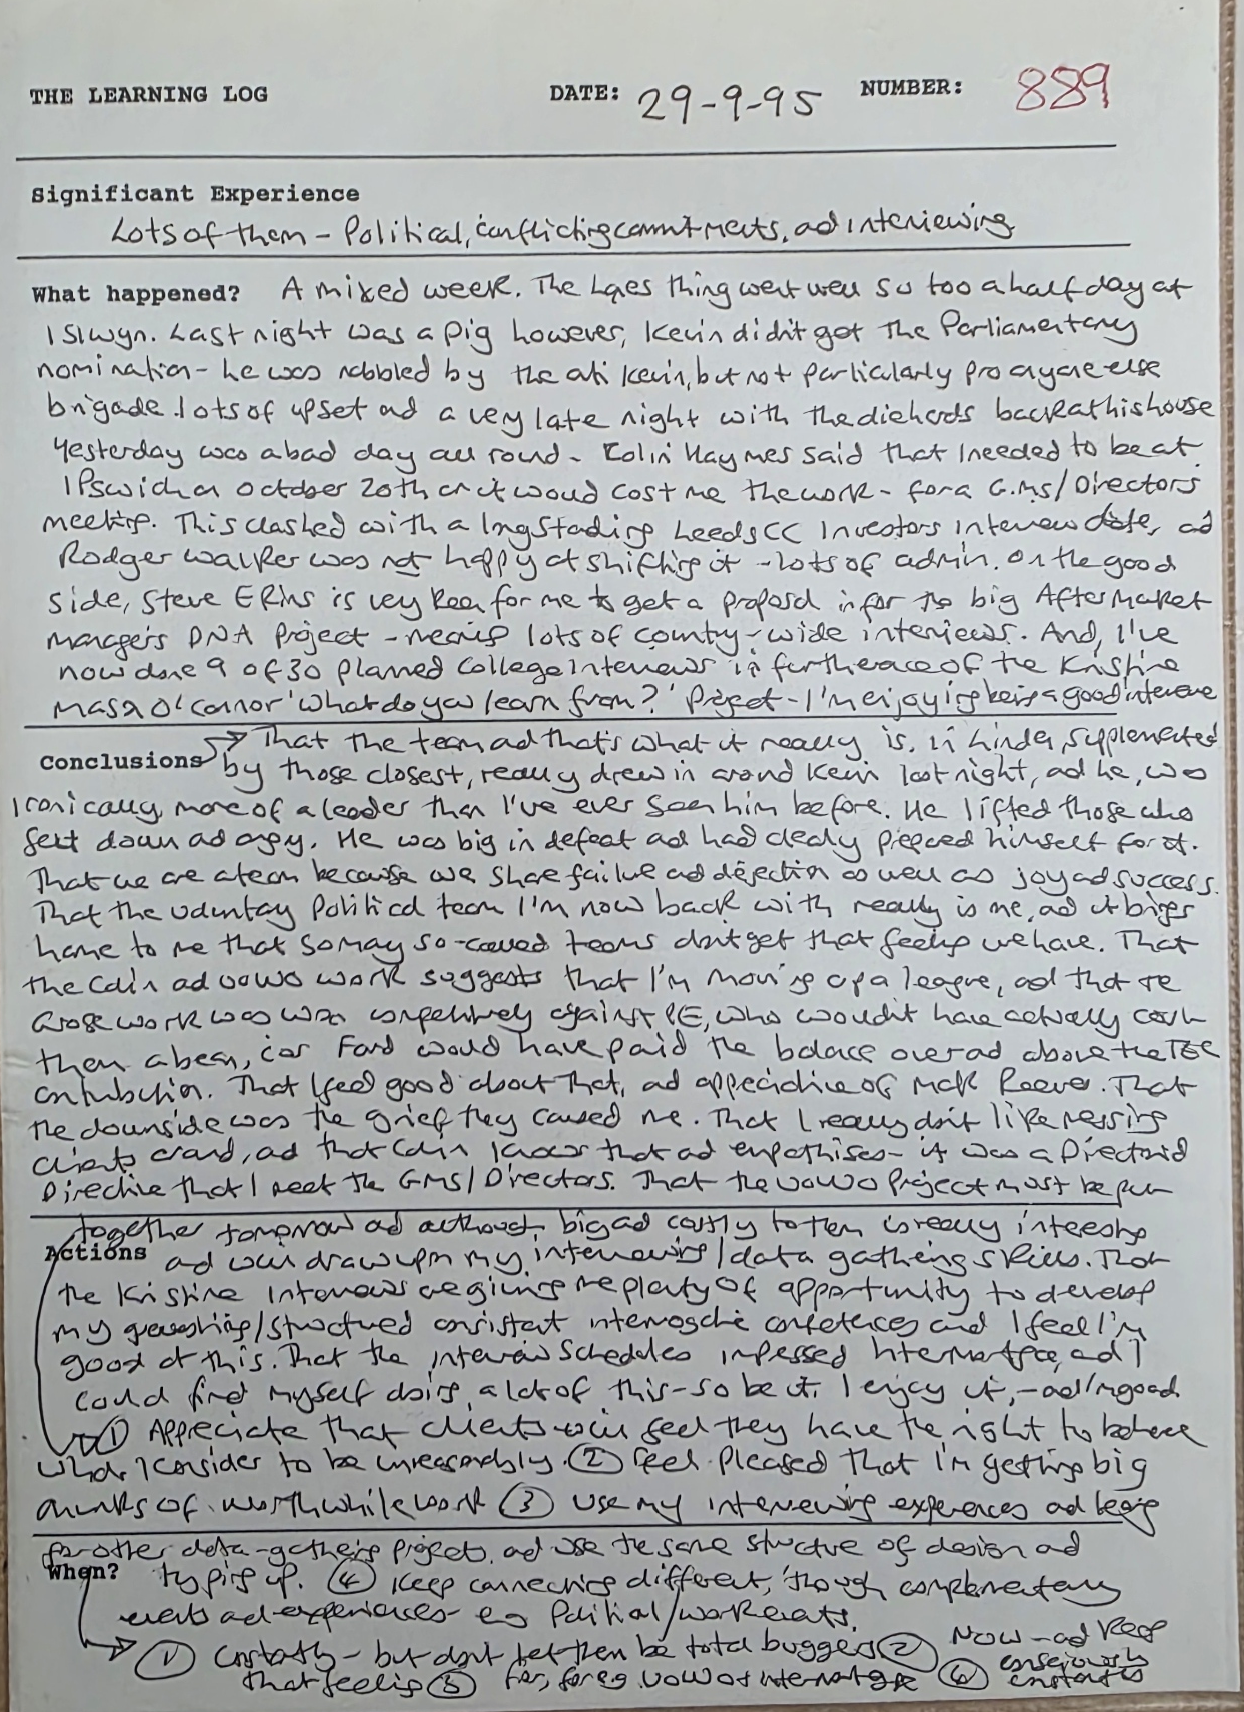 THE LEARNING LOG DATE: 29-9-95 NUMBER: 889
Significant Experience
Lots of them - Political, conflicting commitments, ad interviewing
What happened? A mixed week. The thing went well so too a half day at
Islwyn. Last night was a pig however, Kevin didn't get the Parliamentary
nomination - he was nobbled by the ati Kevin, but not particularly pro anyone else
brigade. lots of upset ad a very late night with the diehards back at his house
Yesterday was a bad day all round - Colin Haymes said that I needed to be at
Ipswich on October 20th or it would cost me the work - for a G.Ms/Directors
meeting. This clashed with a long standing Leeds CC Investors interview date, ad
Rodger Walker was not happy at shifting it - lots of admin. On the good
side, Steve Ekins is very keen for me to get a proposal in for the big After Market
managers DNA Project - meaning lots of country-wide interviews. And, I've
now done 9 of 30 planned College Interviews in furtherance of the Kristine
Mason O'Connor 'What do you learn from?' Project - I'm enjoying being a good interviewer
Conclusions That the team ad that's what it really is, supplemented
by those closest, really drew in around Kevin last night, ad he, was
Ironically, more of a leader than I've ever seen him before. He lifted those who
felt down ad angry. He was big in defeat ad had clearly prepared himself for it.
That we are a team because we share failure ad dejection as well as joy ad success.
That the voluntary Political team I'm now back with really is me, ad it brings
home to me that so many so-called teams don't get that feeling we have. That
the Colin ad VOWO work suggests that I'm moving up a league, ad that the
work was won competitively against PE, who wouldn't have actually cost
them a bean, cos Ford would have paid the balance over ad above the TEC
contribution. That I feel good about that, ad appreciative of Mark Reeves. That
the downside was the grief they caused me. That I really don't like messing
clients around, ad that Colin knows that ad empathises - it was a Directorial
Directive that I meet the GMs/Directors. That the VOWO Project must be put
together tomorrow ad although big ad costly to them is really interesting
Actions ad will draw upon my interviewing/data gathering skills. That
the Kristine Interviews are giving me plenty of opportunity to develop
my questioning/structured consistent interrogative competences and I feel I'm
good at this. That the Interview Schedules impressed ad I
could find myself doing a lot of this - so be it. I enjoy it, - ad I'm good
① Appreciate that clients will feel they have the right to behave
what I consider to be unreasonably. ② Feel pleased that I'm getting big
chunks of worthwhile work ③ Use my interviewing experiences ad learning
for other data-gathering projects, ad use the same structure of design ad
When? typing up. ④ Keep connecting different, though complementary
events ad experiences - eg Political/work events.
① Constantly - but don't let them be total buggers ② Now - ad keep
that feeling ③ for eg. VOWO ④ consciously
constantly